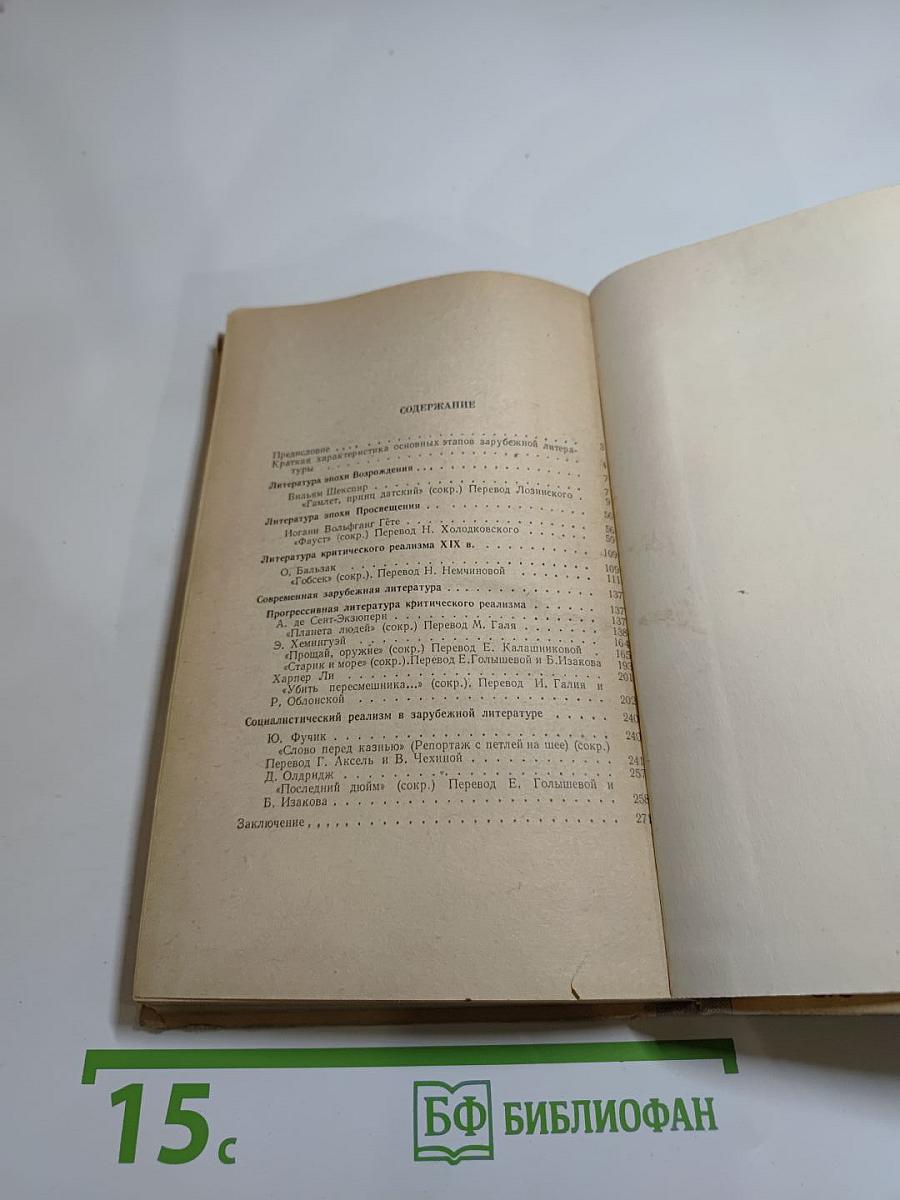 СОДЕРЖАНИЕ
Предисловие . . . . 3
Краткая характеристика основных этапов зарубежной литера-
туры . . . . 4
Литература эпохи Возрождения . . . . 7
Вильям Шекспир . . . . 7
«Гамлет, принц датский» (сокр.) Перевод Лозинского . 9
Литература эпохи Просвещения . . . . 56
Иоганн Вольфганг Гёте . . . . 56
«Фауст» (сокр.) Перевод Н. Холодковского . . . . 59
Литература критического реализма XIX в. . . . . 109
О. Бальзак . . . . 109
«Гобсек» (сокр.). Перевод Н. Немчиновой . . . . 111
Современная зарубежная литература . . . . 137
Прогрессивная литература критического реализма . . . . 137
А. де Сент-Экзюпери . . . . 137
«Планета людей» (сокр.) Перевод М. Галя . . . . 138
Э. Хемингуэй . . . . 164
«Прощай, оружие» (сокр.) Перевод Е. Калашниковой . 165
«Старик и море» (сокр.).Перевод Е.Голышевой и Б.Изакова 193
Харпер Ли . . . . 201
«Убить пересмешника...» (сокр.). Перевод И. Галия и
Р. Облонской . . . . 202
Социалистический реализм в зарубежной литературе . . . . 240
Ю. Фучик . . . . 240
«Слово перед казнью» (Репортаж с петлей на шее) (сокр.)
Перевод Г. Аксель и В. Чехиной . . . . 241
Д. Олдридж . . . . 257
«Последний дюйм» (сокр.) Перевод Е. Голышевой и
Б. Изакова . . . . 258
Заключение . . . . 271
15 с
БФ БИБЛИОФАН